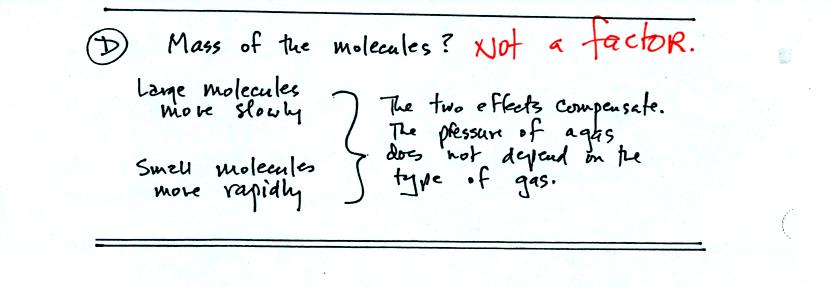 D Mass of the molecules? Not a factor.
Large molecules
move slowly
Small molecules
move rapidly
The two effects compensate.
The pressure of a gas
does not depend on the
type of gas.